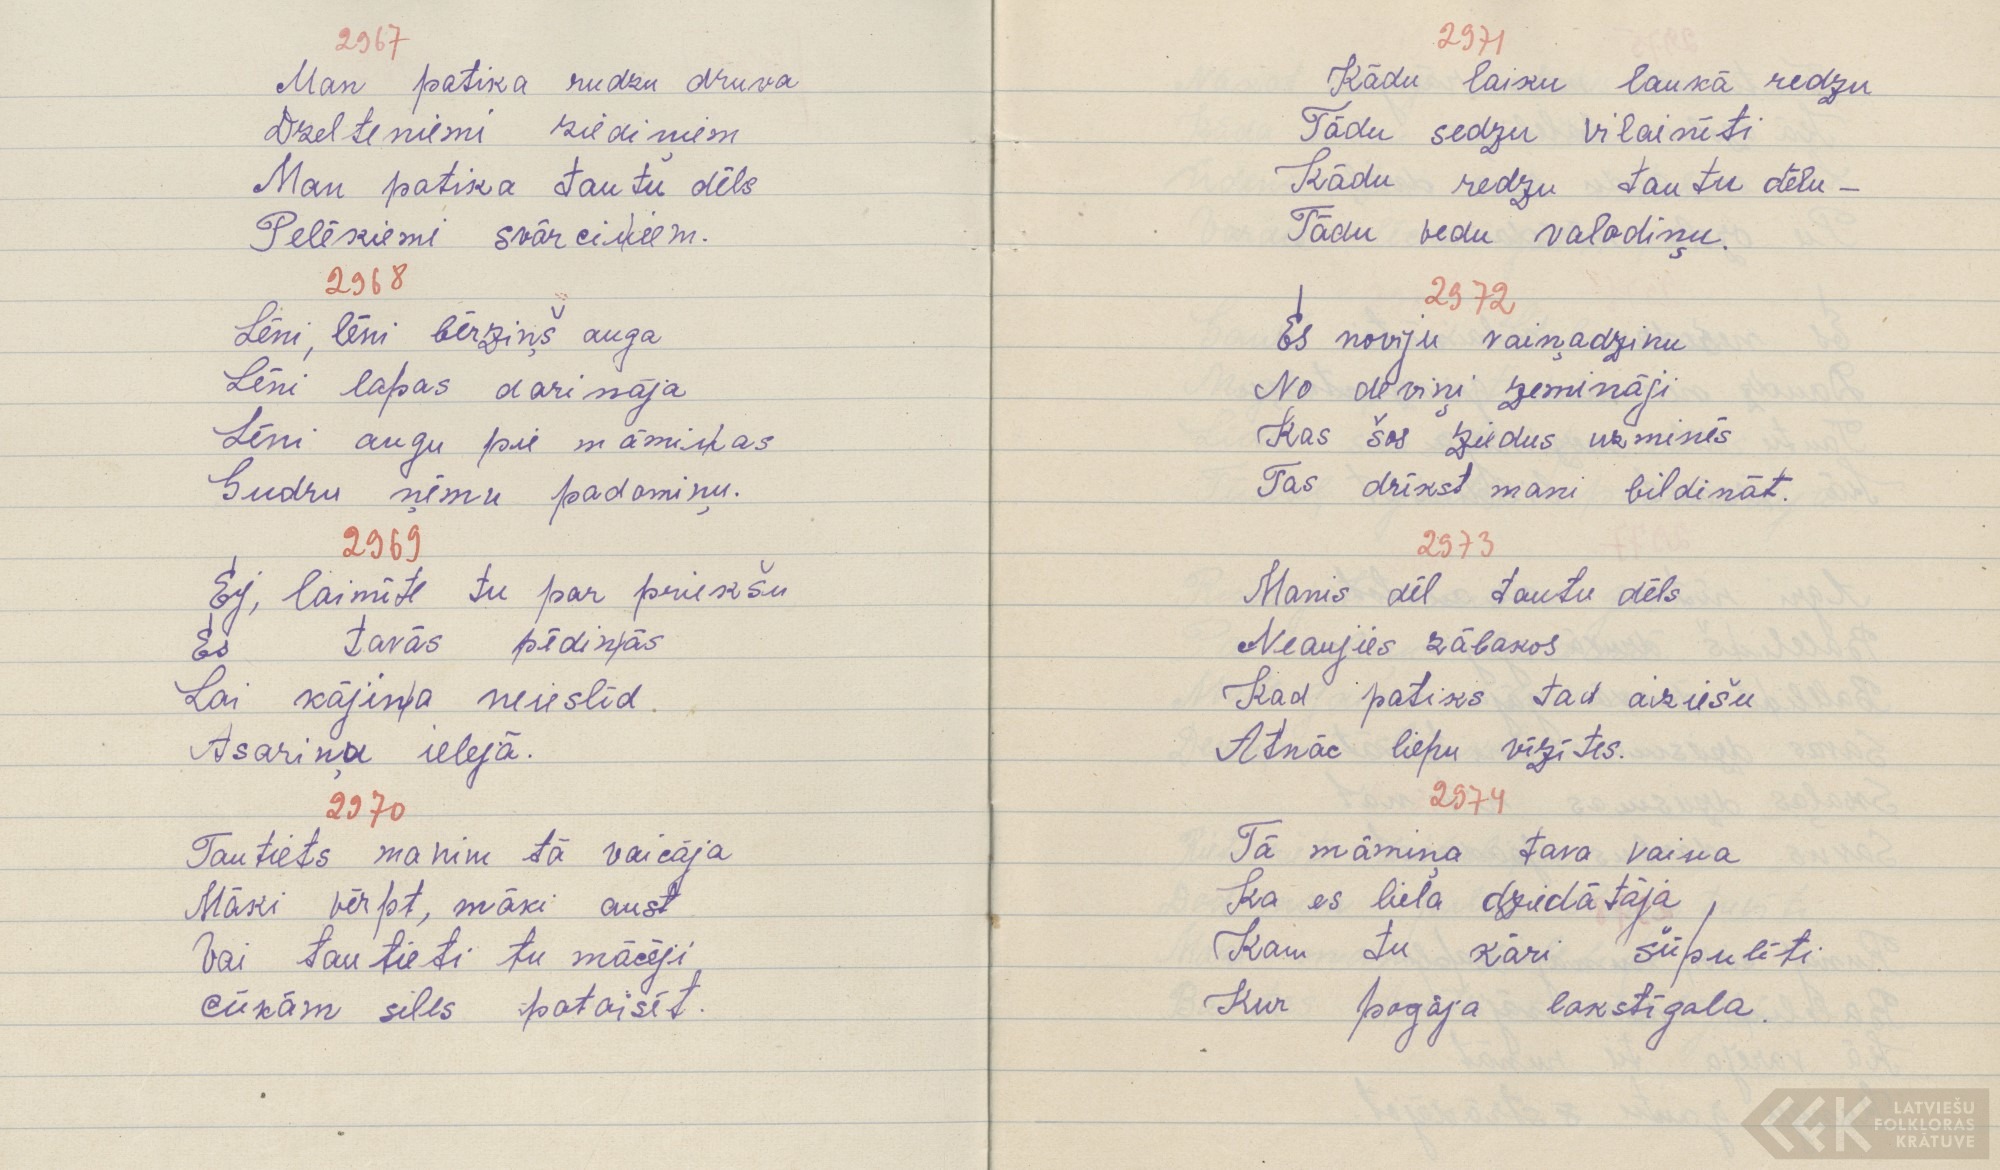 2967
Man patika rudzu druva
Dzelteniemi ziediņiem
Man patika tautu dēls
Pelēkiemi svārciņiem.
2968
Lēni, lēni bērziņš auga
Lēni lapas darināja
Lēni augu pie māmiņas
Gudru ņēmu padomiņu.
2969
Ej, laimīte tu par priekšu
Es tavās pēdiņās
Lai kājiņa neieslīd
Asariņu ielejā.
2970
Tautiets manim tā vaicāja
Māki vērpt, māki aust
Vai tautieti tu mācēji
cūkām siles pataisīt.
2971
Kādu laiku laukā redzu
Tādu sedzu vilainīti
Kādu redzu tautu dēlu –
Tādu vedu valodiņu.
2972
Es noviju vaiņadziņu
No deviņi zemināji
Kas šos ziedus uzminēs
Tas drīkst mani bildināt.
2973
Manis dēl tautu dēls
Neaujies zābakos
Kad patiks tad aiziešu
Atnāc liepu vīzītēs.
2974
Tā māmiņa tava vaina
Ka es liela dziedātāja
Kam tu kāri šūpulīti
Kur pogāja lakstīgala.
LATVIEŠU
FOLKLORAS
KRĀTUVE